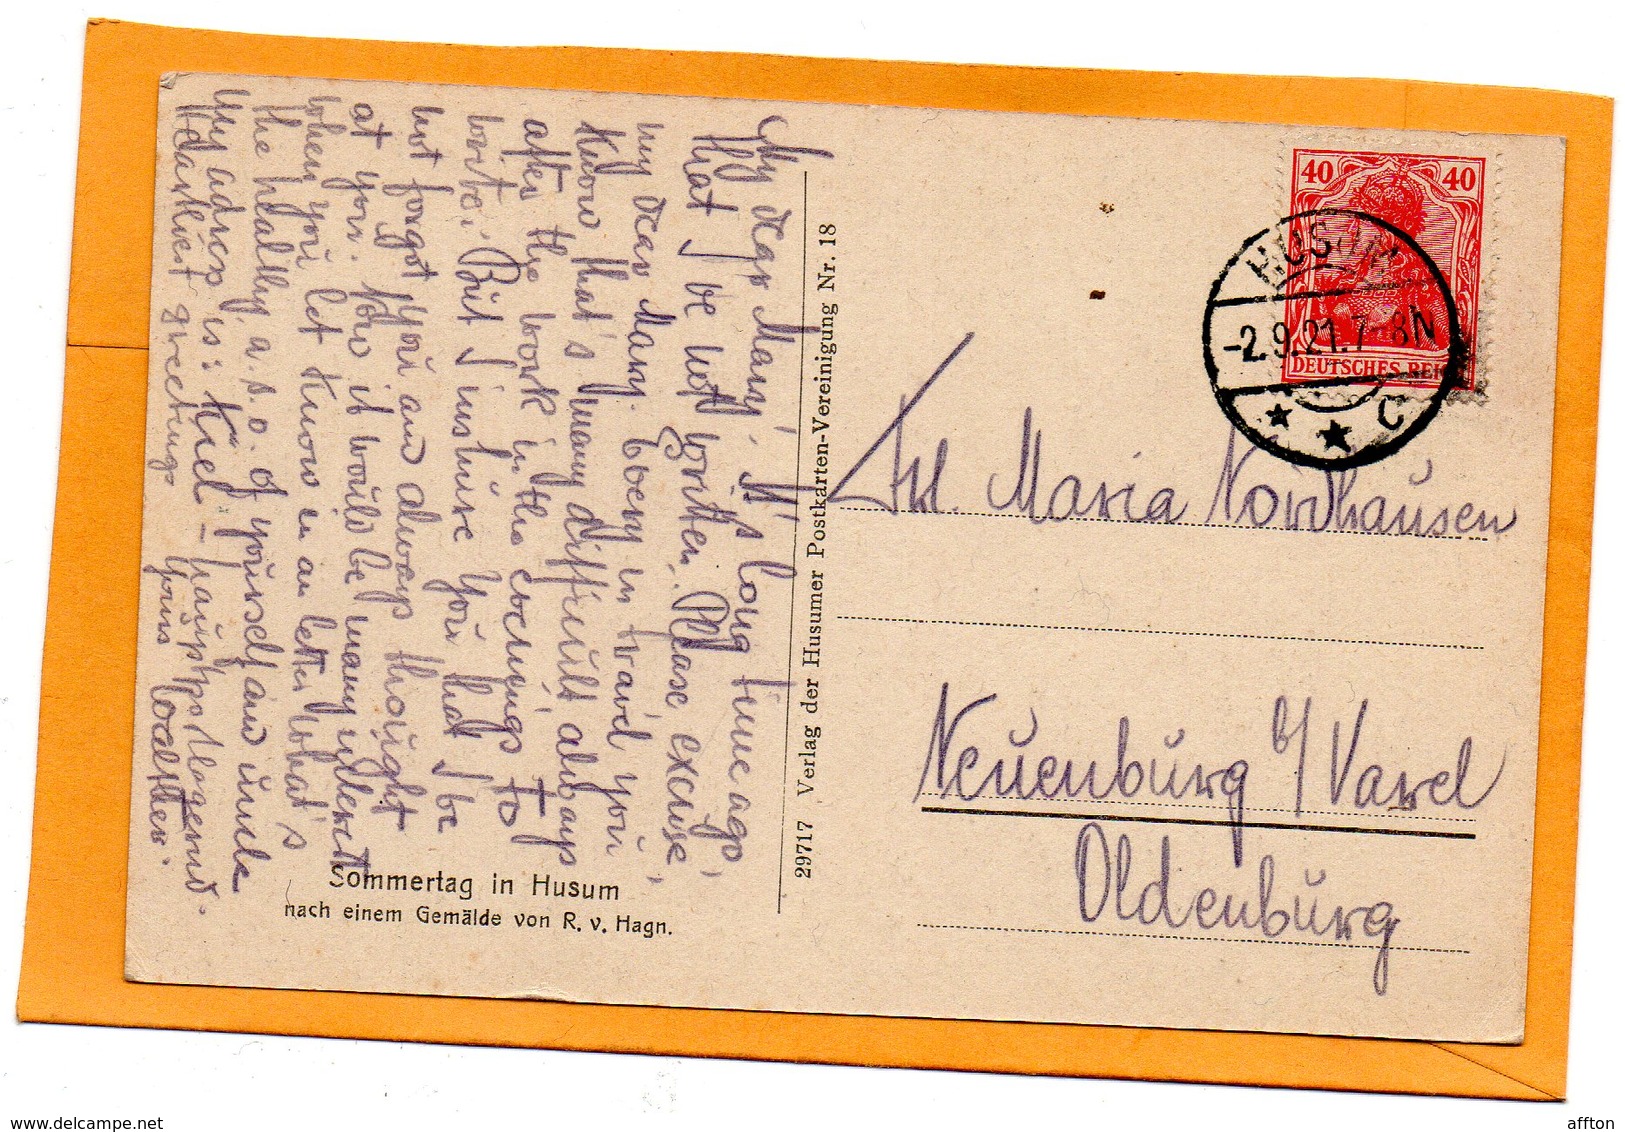 My dear Mary! It's long time ago,
that I be not written. Please, excuse,
my dear Mary. Very in hraid you
know that's many difficult always
after the work in the evenings to
write. But I inshure you that I be
not forgot you and always thought
at you. Now it would be many interest
when you let know in an letter what's
the healthy, a.s.o. of yourself and uncle
My adress is: Kiel – hauptpostlagernd.
Hearthiest greetings yours Walther.
Sommertag in Husum
nach einem Gemälde von R. v. Hagn.
29717 Verlag der Husumer Postkarten-Vereinigung Nr. 18
40 40
DEUTSCHES REICH
HUSUM
-2.9.21.7-8N
* * C
Frl. Maria Nordhausen
Neuenburg b/ Varel
Oldenburg
delcampe.net
affton